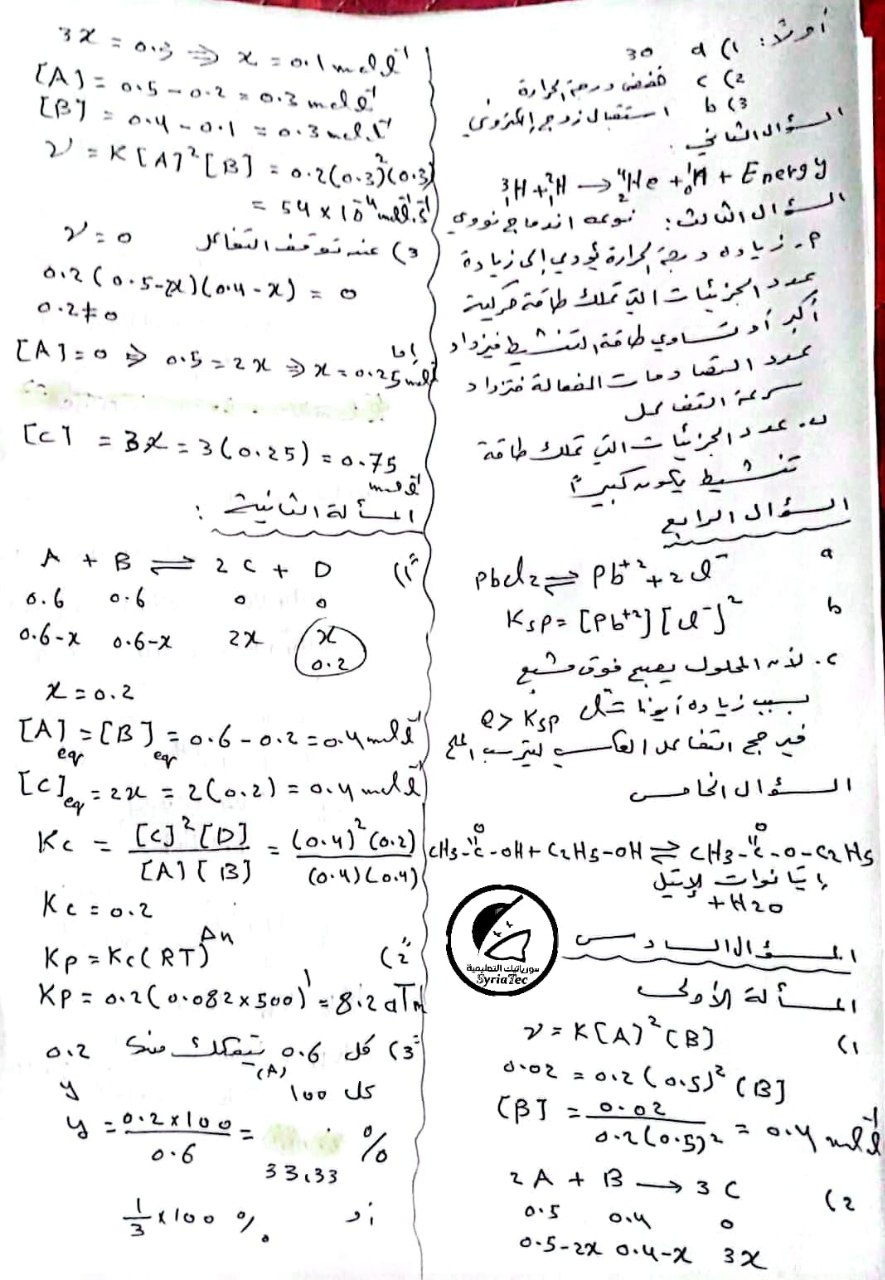 أولاً: 1) d 30
2) c خفض درجة الحرارة
3) b استقبال زوج إلكتروني
السؤال الثاني:
³₁H + ²₁H → ⁴₂He + ¹₀n + Energy
السؤال الثالث: نوعه اندماج نووي
م- زيادة درجة الحرارة يؤدي إلى زيادة
عدد الجزيئات التي تملك طاقة حركية
أكبر أو تساوي طاقة التنشيط فيزداد
عدد التصادمات الفعالة فتزداد
سرعة التفاعل
ب. عدد الجزيئات التي تملك طاقة
تنشيط يكون كبيراً
السؤال الرابع
a PbCl2 ⇌ Pb⁺² + 2Cl⁻
b Ksp = [Pb⁺²][Cl⁻]²
c. لأن المحلول يصبح فوق مشبع
بسبب زيادة أيونات Cl⁻ Q > Ksp
فيرجح التفاعل العكسي ليترسب الملح
السؤال الخامس
O O
CH3-C-OH + C2H5-OH ⇌ CH3-C-O-C2H5
إيتانوات الإيتيل
+ H2O
سورياتيك التعليمية
SyriaTec
السؤال السادس
المسألة الأولى
1) v = K[A]²[B]
0.02 = 0.2(0.5)²[B]
[B] = 0.02 / 0.2(0.5)2 = 0.4 mol l⁻¹
2) 2A + B → 3C
0.5 0.4 0
0.5-2x 0.4-x 3x
3x = 0.3 ⇒ x = 0.1 mol l⁻¹
[A] = 0.5 - 0.2 = 0.3 mol l⁻¹
[B] = 0.4 - 0.1 = 0.3 mol.l⁻¹
v = K[A]²[B] = 0.2(0.3)²(0.3)
= 54 × 10⁻⁴ mol l⁻¹.s⁻¹
3) عند توقف التفاعل v = 0
0.2(0.5-2x)(0.4-x) = 0
0.2 ≠ 0
إما [A] = 0 ⇒ 0.5 = 2x ⇒ x = 0.25 mol l⁻¹
[C] = 3x = 3(0.25) = 0.75
mol l⁻¹
المسألة الثانية:
1) A + B ⇌ 2C + D
0.6 0.6 0 0
0.6-x 0.6-x 2x x
0.2
x = 0.2
[A]eq = [B]eq = 0.6 - 0.2 = 0.4 mol l⁻¹
[C]eq = 2x = 2(0.2) = 0.4 mol l⁻¹
Kc = [C]²[D] / [A][B] = (0.4)²(0.2) / (0.4)(0.4)
Kc = 0.2
2) Kp = Kc(RT)^Δn
Kp = 0.2(0.082×500)¹ = 8.2 atm
3) كل 0.6 يتفكك منها 0.2
(A)
كل 100 y
y = 0.2×100 / 0.6 = %
33,33
أو 1/3 × 100 %